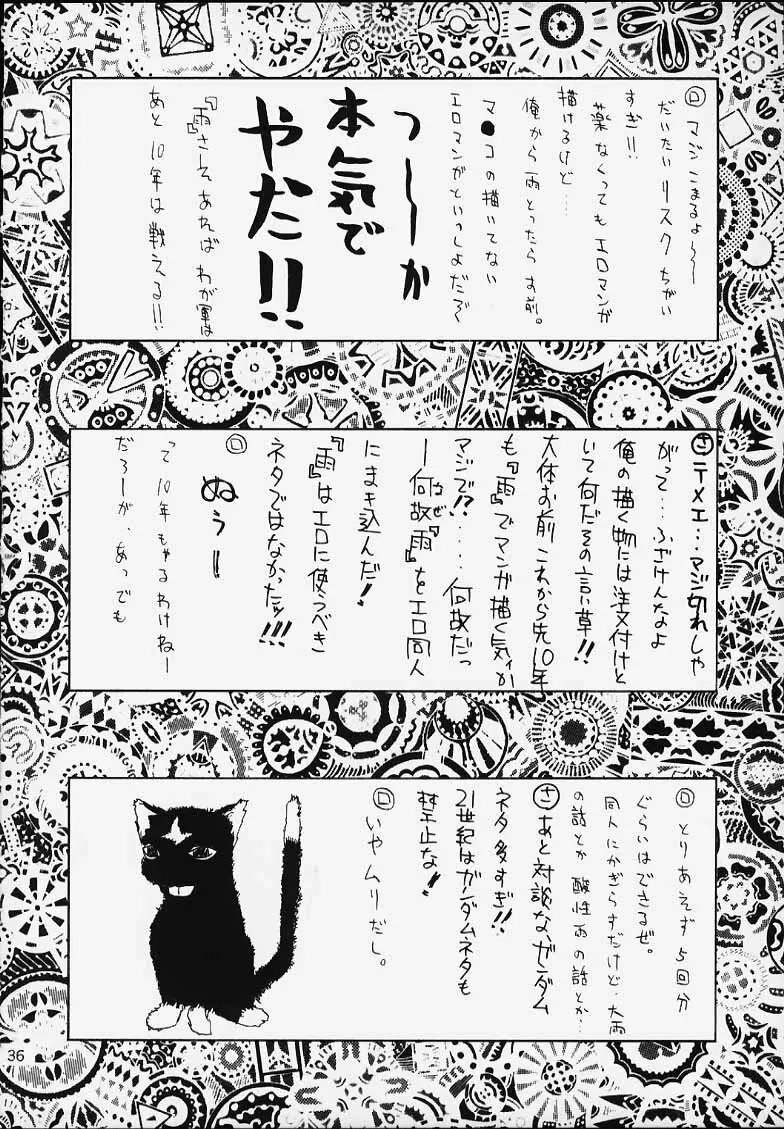 ロ マジこまるよ～～
だいたいリスクちがい
すぎ!!
薬なくってもエロマンガ
描けるけど…
俺から雨とったらお前。
マ●コの描いてない
エロマンガといっしょだぞ～
つ～～か
本気で
やだ!!
『雨』さえあればわが軍は
あと10年は戦える!!
さ テメエ‥マジ切れしゃ
がって…ふざけんなよ
俺の描く物には注文付けと
いて何だその言い草!!
大体お前これから先10年
も『雨』でマンガ描く気か
マジで!?‥‥何故だっ
ー何故『雨』をエロ同人
なぜ
にまき込んだ!
『雨』はエロに使うべき
ネタではなかったッ!!!
ロ ぬぅー
って10年もやるわけねー
だろーが、あっでも
ロ とりあえず5回分
ぐらいはできるぜ。
同人にかぎらずだけど、大雨
の話とか酸性雨の話とか…
さ あと対談な、ガンダム
ネタ多すぎ!!
21世紀はガンダムネタも
禁止な!!
ロ いやムリだし。
36